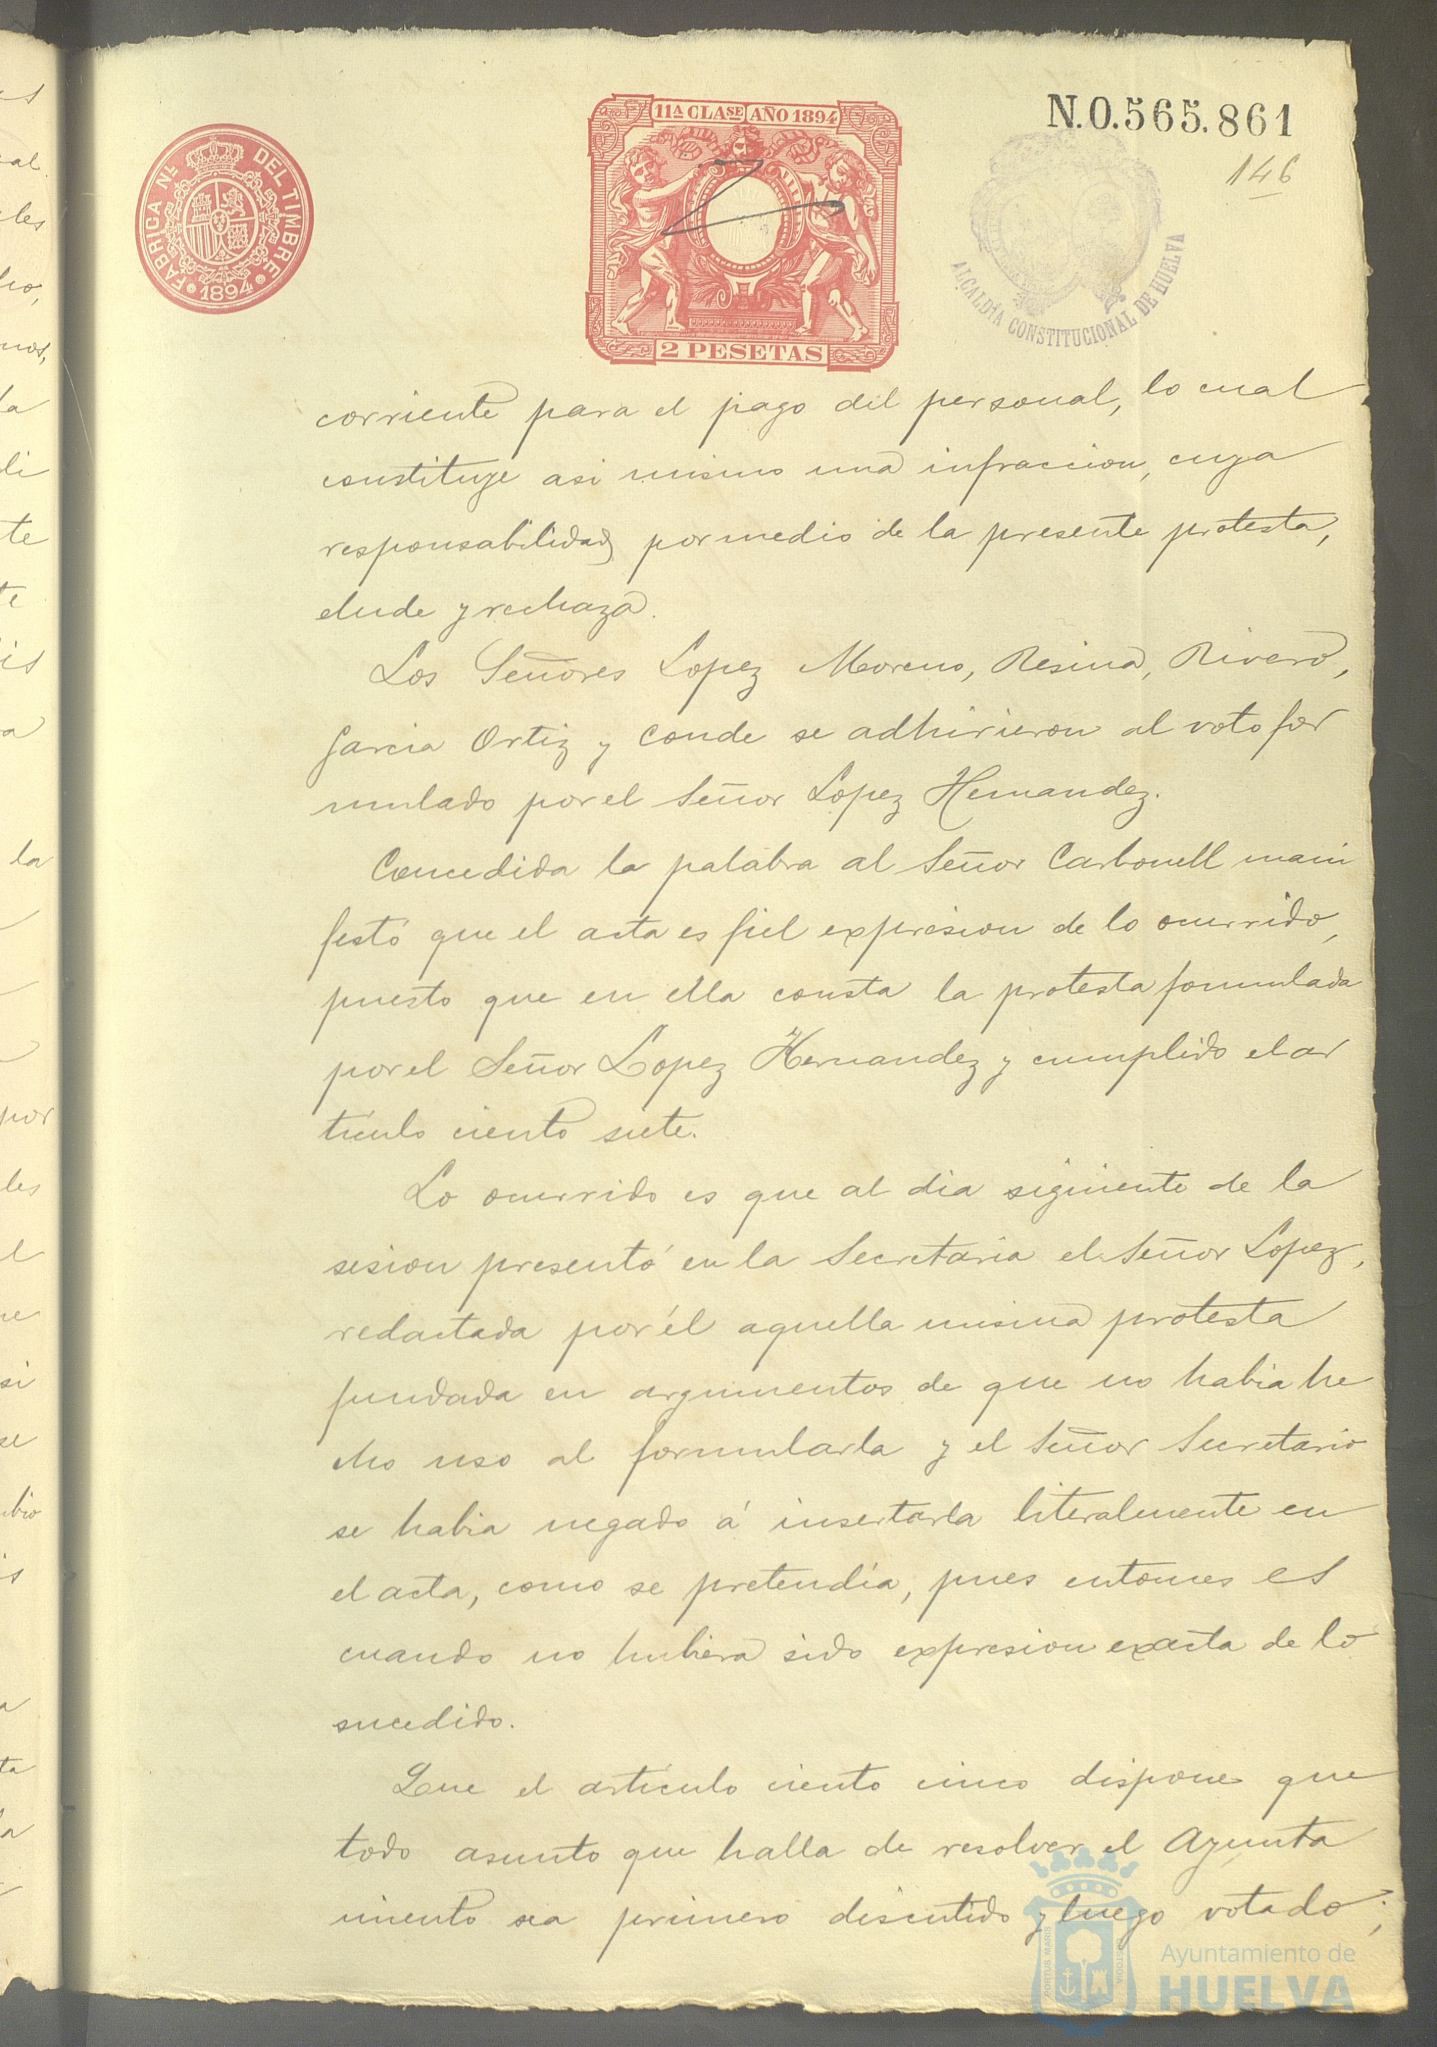 11ª CLASE AÑO 1894
N.0.565.861
146
FABRICA Nᴸ DEL TIMBRE
1894
ALCALDÍA CONSTITUCIONAL DE HUELVA
2 PESETAS
corriente para el pago del personal, lo cual
constituye asi mismo una infraccion, cuya
responsabilidad, por medio de la presente protesta,
elude y rechaza.
Los Señores Lopez Moreno, Resina, Rivero,
Garcia Ortiz y Conde se adhirieron al voto for
mulado por el Señor Lopez Hernandez.
Concedida la palabra al Señor Carbonell mani
festó que el acta es fiel expresion de lo ocurrido,
puesto que en ella consta la protesta formulada
por el Señor Lopez Hernandez y cumplido el ar
tículo ciento siete.
Lo ocurrido es que al dia siguiente de la
sesion presentó en la Secretaria el Señor Lopez,
redactada por él aquella misma protesta
fundada en argumentos de que no habia he
cho uso al formularla y el Señor Secretario
se habia negado á insertarla literalmente en
el acta, como se pretendía, pues entonces es
cuando no hubiera sido expresion exacta de lo
sucedido.
Que el artículo ciento cinco dispone que
todo asunto que halla de resolver el Ayunta
miento sea primero discutido y luego votado;
Ayuntamiento de
HUELVA